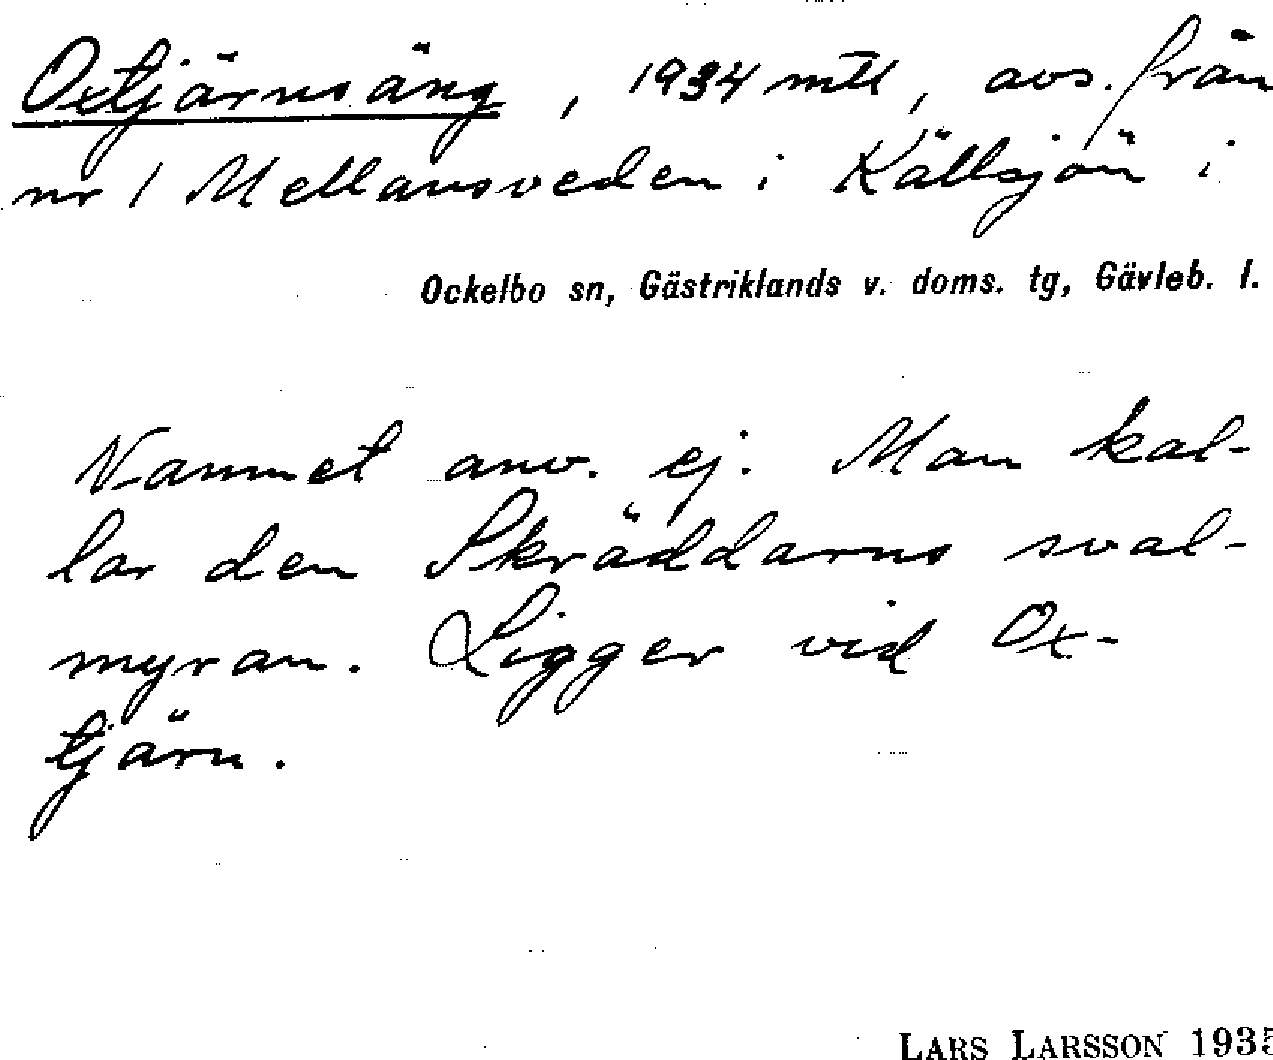 Oxtjärnsäng, 1934 mtl, avs. från
nr 1 Mellansveden i Källsjön i
Ockelbo sn, Gästriklands v. doms. tg, Gävleb. l.
Namnet anv. ej. Man kal-
lar den Skräddarns sval-
myran. Ligger vid Ox-
tjärn.
LARS LARSSON 1935